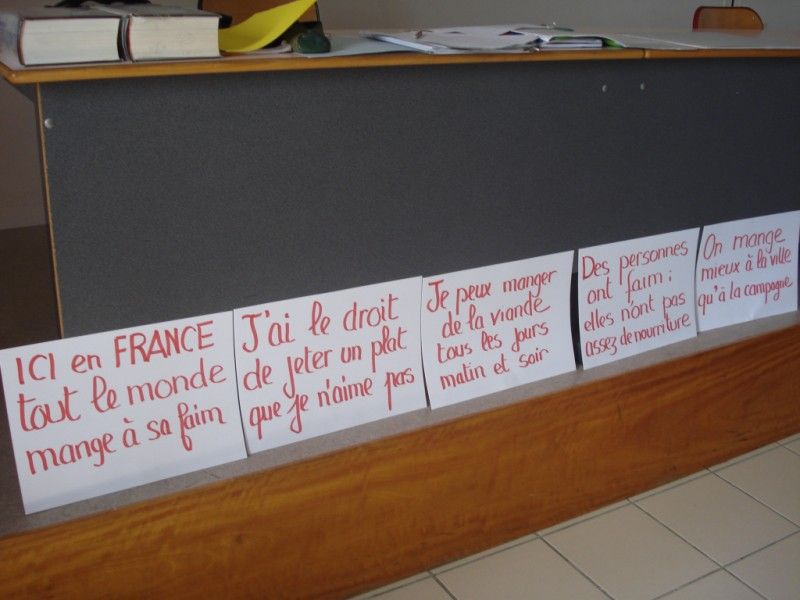 ICI en FRANCE
tout le monde
mange à sa faim
J'ai le droit
de jeter un plat
que je n'aime pas
Je peux manger
de la viande
tous les jours
matin et soir
Des personnes
ont faim ;
elles n'ont pas
assez de nourriture
On mange
mieux à la ville
qu'à la campagne